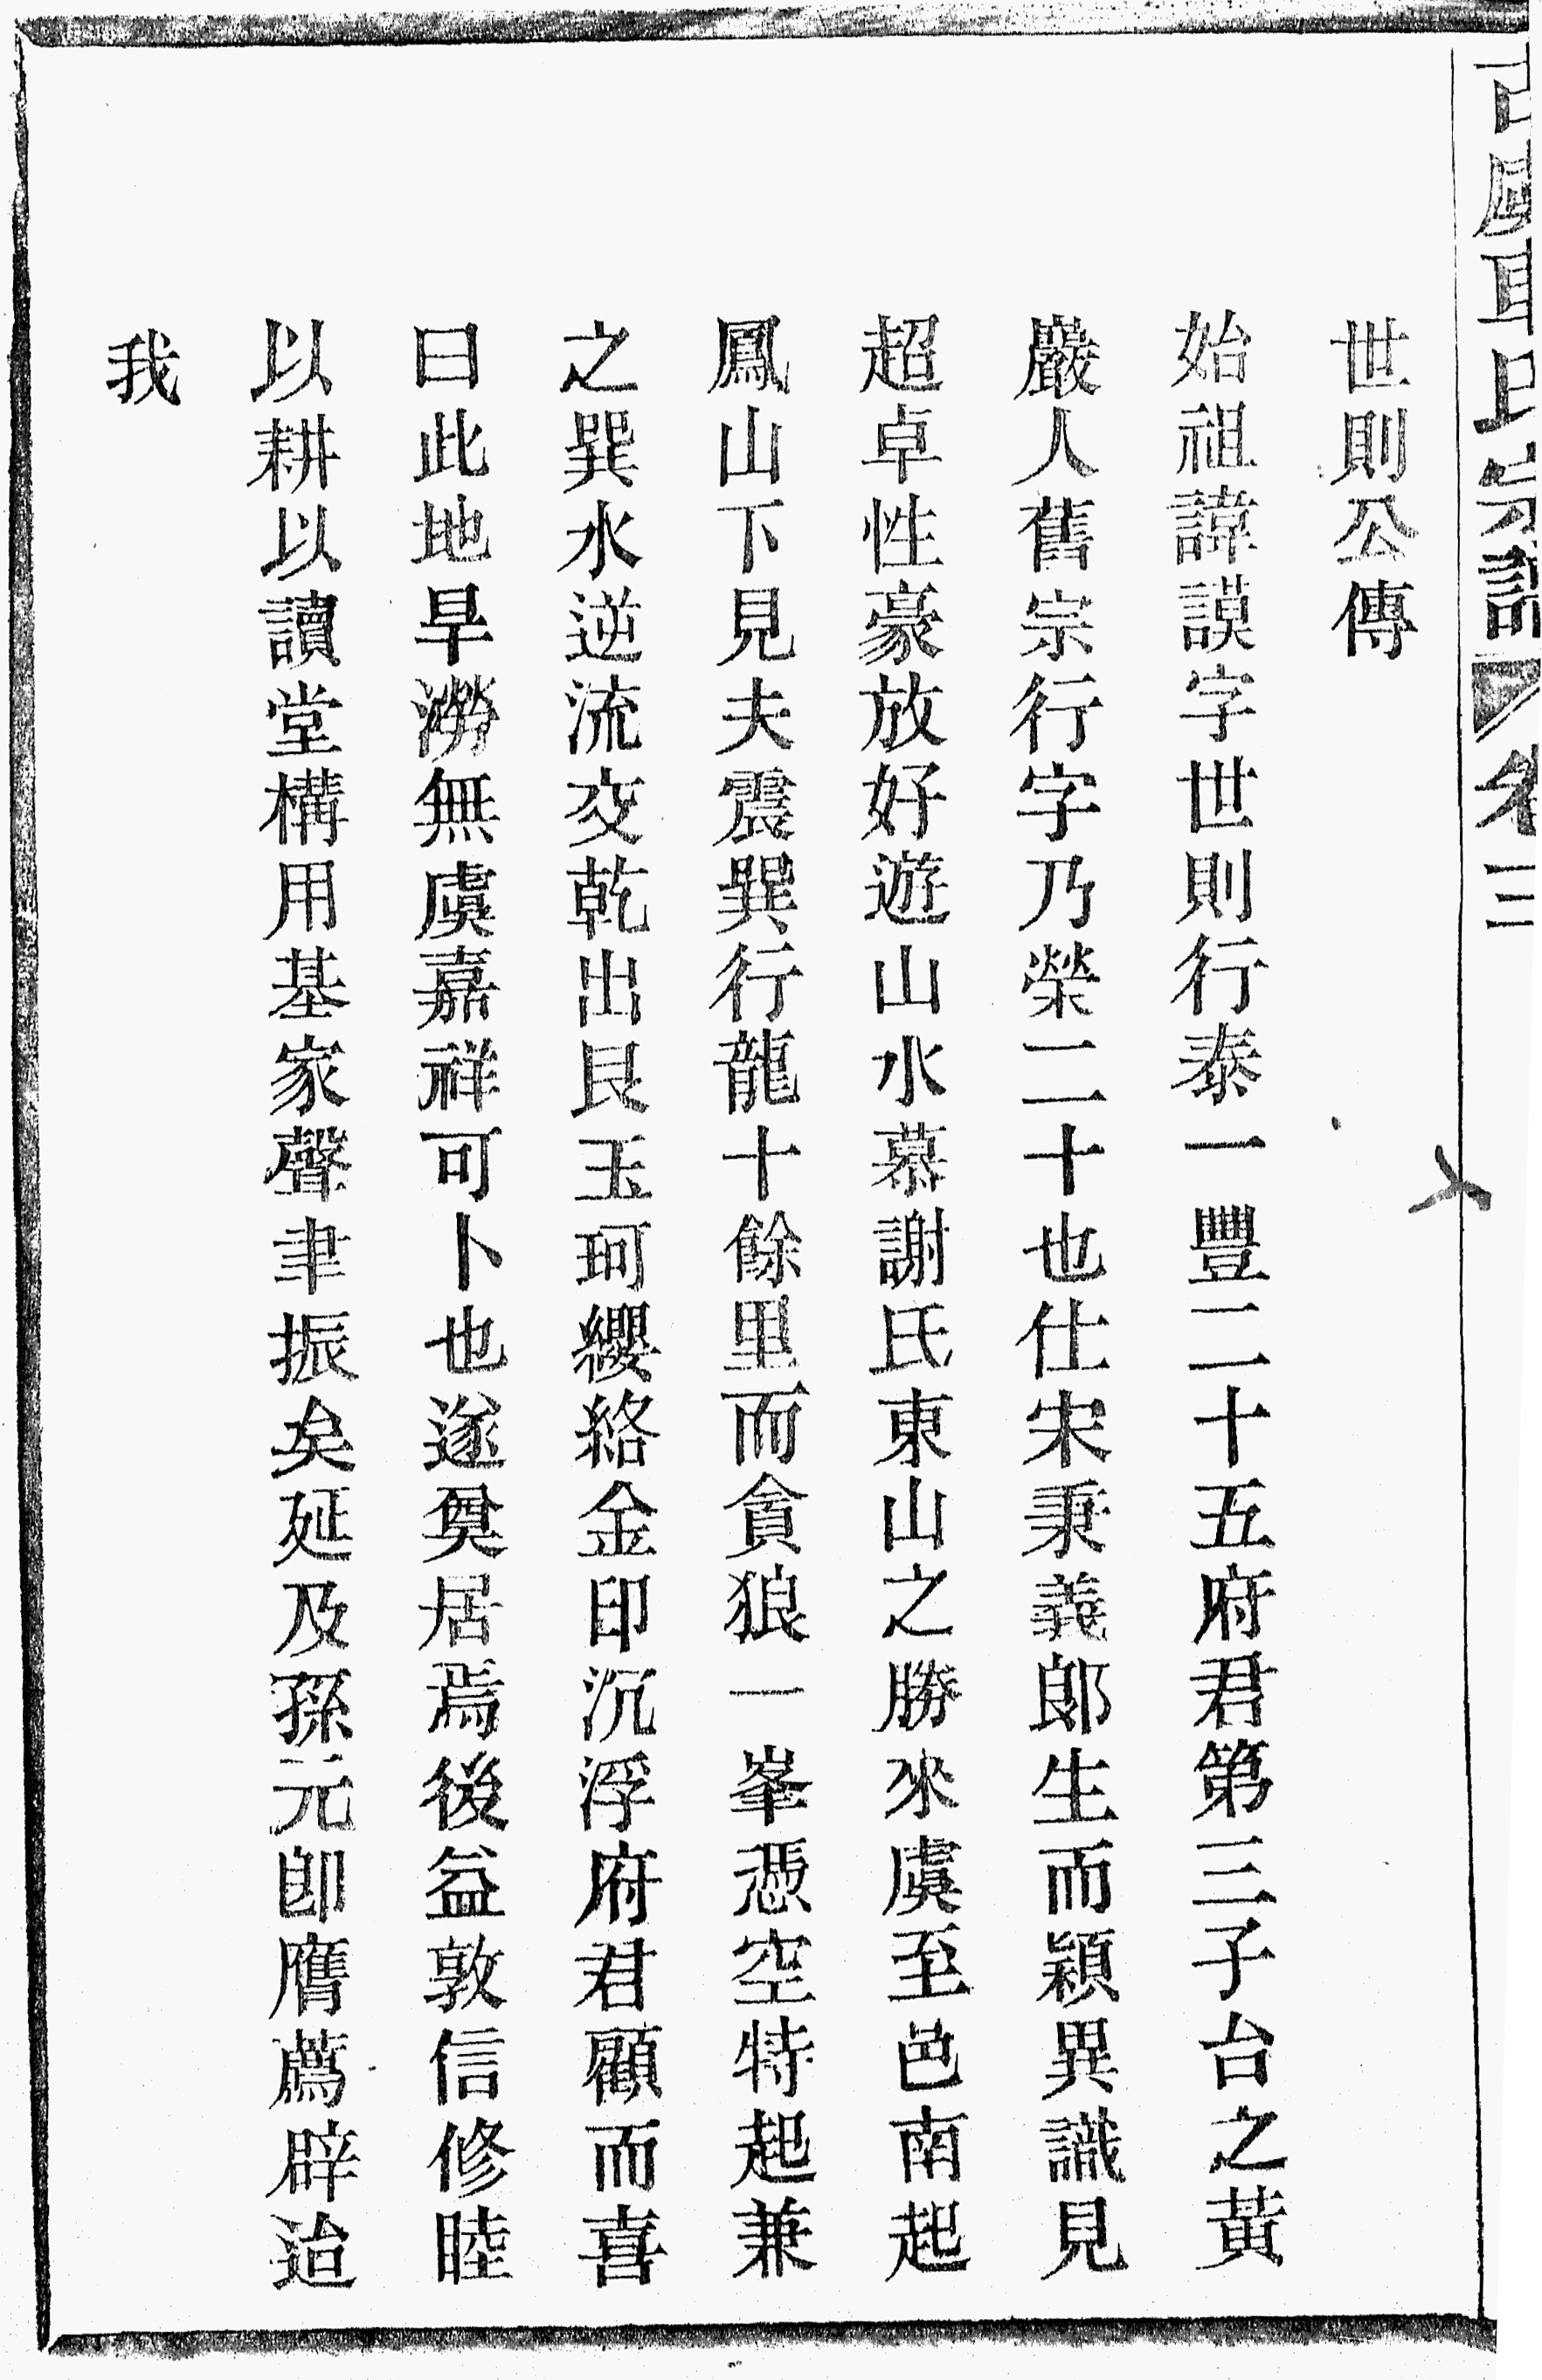 古虞耴氏宗譜 卷三
世則公傳
始祖諱謨字世則行泰一豐二十五府君第三子台之黃
巖人舊宗行字乃榮二十也仕宋秉義郎生而穎異識見
超卓性豪放好遊山水慕謝氏東山之勝來虞至邑南起
鳳山下見夫震巽行龍十餘里而貪狼一峯憑空特起兼
之巽水逆流交乾出艮玉珂纓絡金印沉浮府君顧而喜
曰此地旱澇無虞嘉祥可卜也遂奠居焉後益敦信修睦
以耕以讀堂構用基家聲聿振矣延及孫元卽膺薦辟迨
我